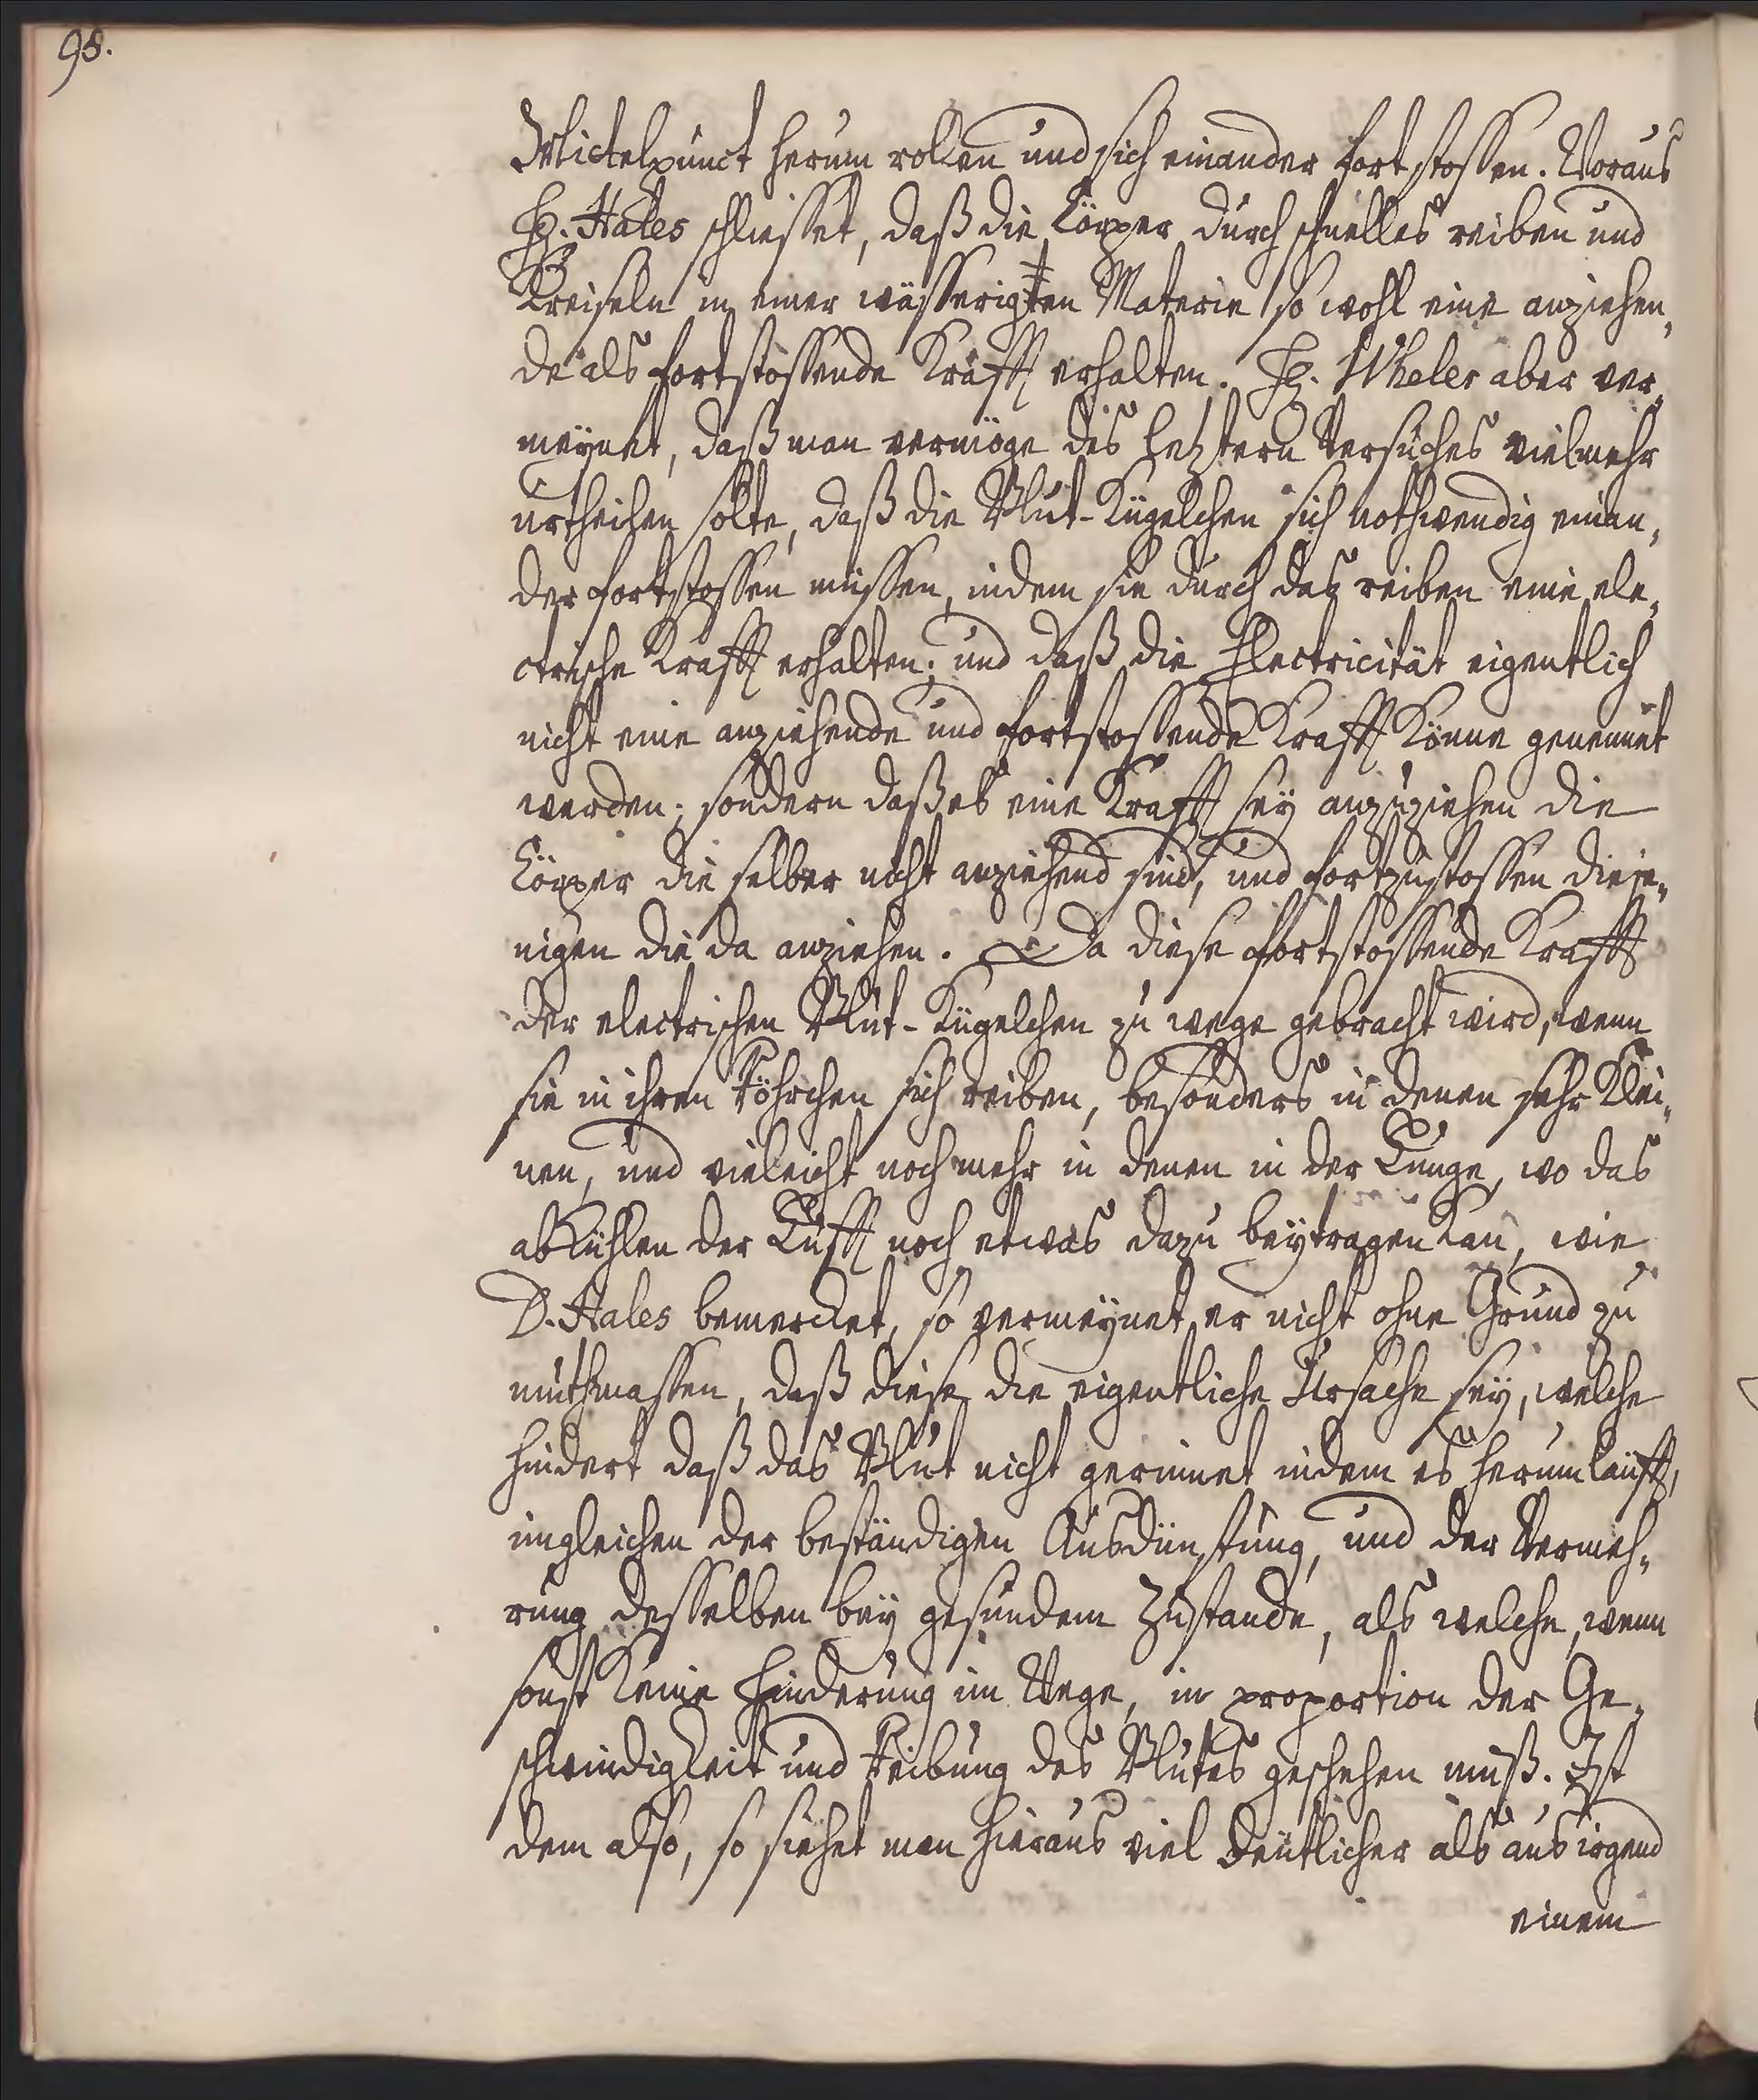 98.
Mittelpunct herum rollen und sich einander fortstossen. Woraus
H. Hales schliesset, daß die Cörper durch schnelles reiben und
Kreiseln in einer wässerigten Materie so wohl eine anziehen„
de als fortstossende Krafft erhalten. H. Wheler aber ver„
meÿnet, daß man vermöge des letztern Versuches vielmehr
urtheilen solte, daß die Blut-Kügelchen sich nothwendig einan„
der fortstossen müssen, indem sie durch das reiben eine ele„
ctrische Krafft erhalten; und daß die Electricität eigentlich
nicht eine anziehende und fortstossende Krafft könne genennet
werden; sondern daß es eine Krafft seÿ anzuziehen die
Cörper die selber nicht anziehend sind, und fortzustossen dieje„
nigen die da anziehen. Da diese fortstossende Krafft
der electrischen Blut-Kügelchen zu wege gebracht wird, wenn
sie in ihren Röhrchen sich reiben, besonders in denen sehr klei„
nen, und vieleicht noch mehr in denen in der Lunge, wo das
abkühlen der Lufft noch etwas dazu beÿtragen kan, wie
D. Hales bemercket, so vermeÿnet er nicht ohne Grund zu
muthmassen, daß diese die eigentliche Ursache seÿ, welche
hindert daß das Blut nicht gerinnet indem es herumläufft,
imgleichen der beständigen Ausdünstung, und der Vermeh„
rung desselben beÿ gesundem Zustande, als welche, wenn
sonst keine Hinderung im Wege, in proportion der Ge„
schwindigkeit und Reibung des Blutes geschehen muß. Ist
dem also, so siehet man hieraus viel deutlicher als aus irgend
einem